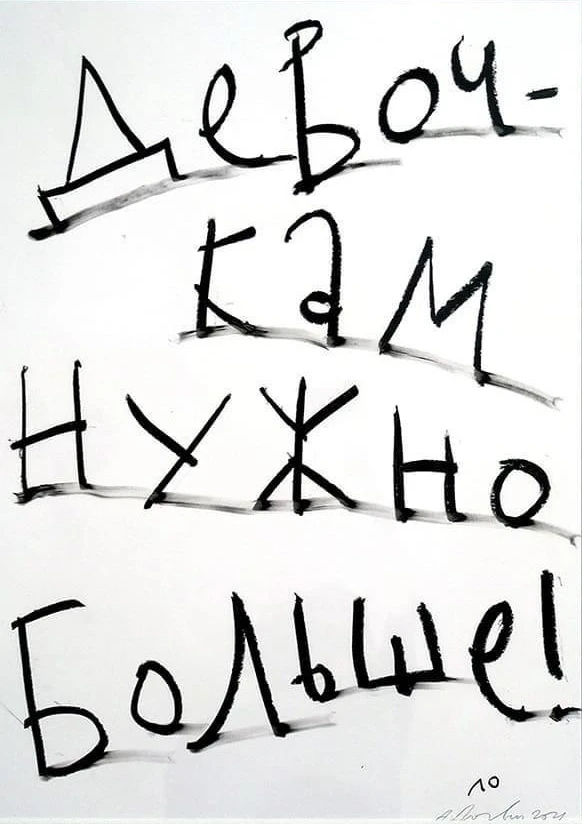 Девоч-
кам
нужно
больше!
10